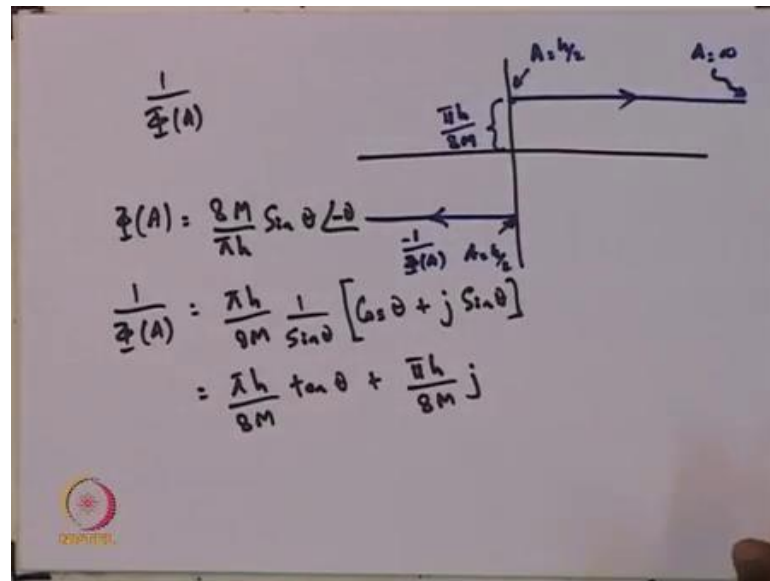 A = h/2 A = ∞
1/Φ(A)
πh/8M {
Φ(A) = 8M/πh Sin θ ∠-θ
-1/Φ(A) A = h/2
1/Φ(A) = πh/8M 1/Sinθ [Cos θ + j Sinθ]
= πh/8M tan θ + πh/8M j
NPTEL